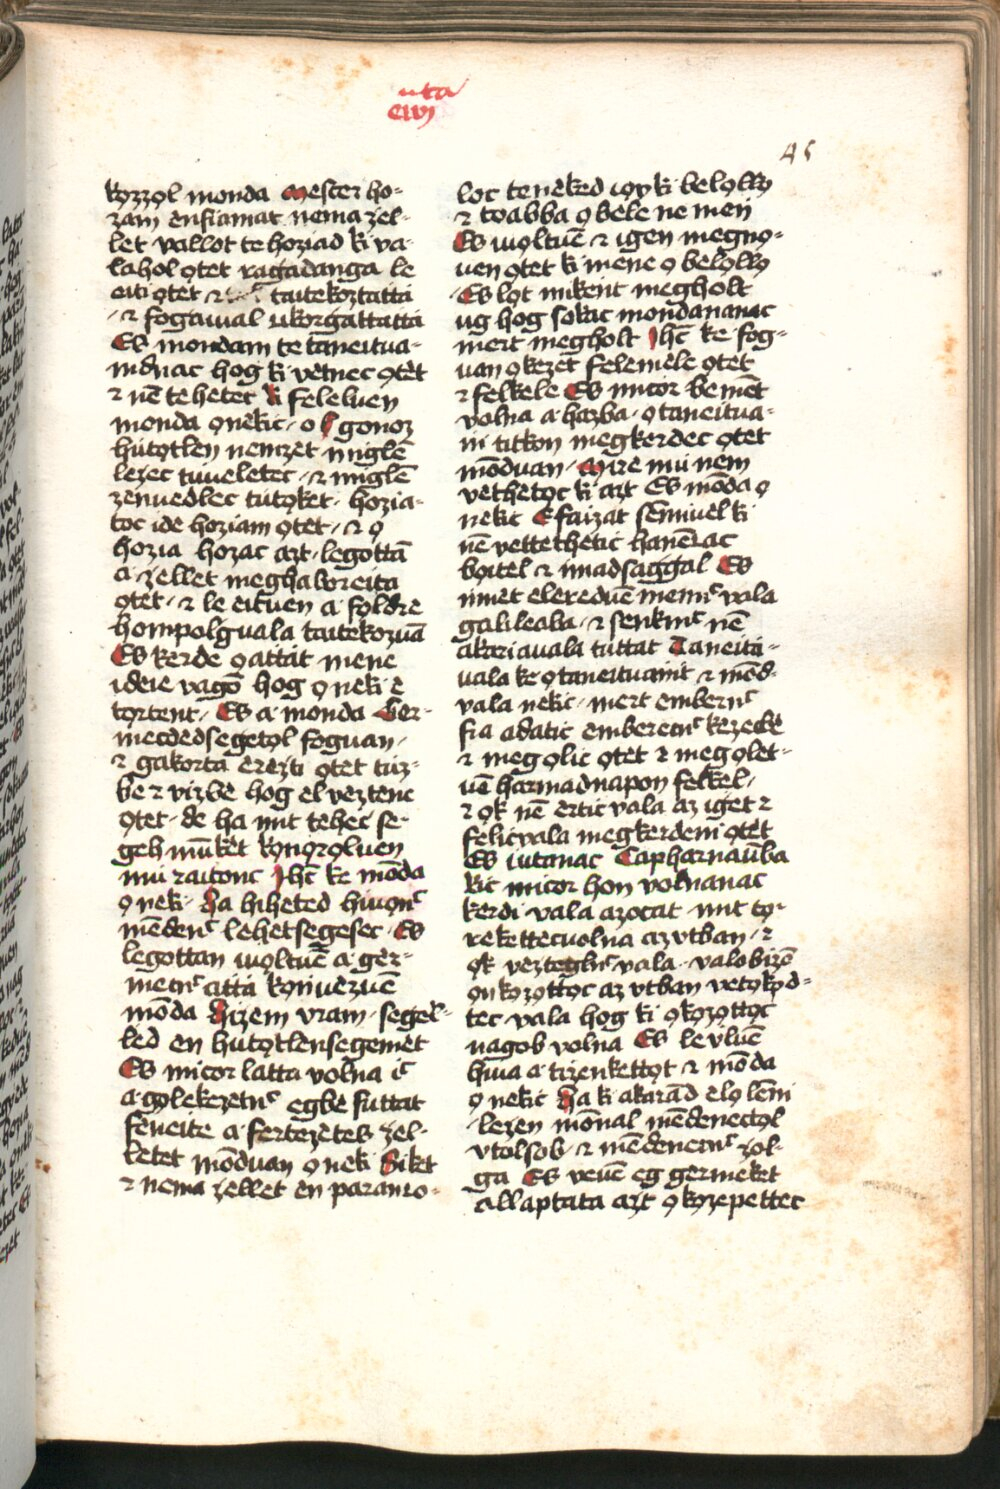 45
kozzol monda Mester ho-
zam en fiamat nema zel-
let vallot te hoziad ki va-
lahol otet ragadanga le
eiti otet ⁊ taitekoztatta
⁊ fogaiual ukorgattatta
Es mondam te taneitua-
nidnac hog ki vetnec otet
⁊ nē tehetec ki feleluen
monda onekic, o gonoz
hutotlen nemzet miglē
lezec tuveletec, ⁊ miglē
zenuedlec tutoket, hozia-
toc ide hoziam otet, ⁊ o
hozia hozac azt, legottā
a zellet meghaboreita
otet, ⁊ le eituen a foldre
hompolguala taitekozuā
Es kerde o attat mene
ideie vagō hog o neki e
tortent, Es a monda Ger-
mecdedsegetol foguan,
⁊ gakorta erezti otet tuz-
be ⁊ vizbe hog el veztene
otet, de ha mit tehec se-
geh mūket konoroluen
mū raitonc Ihc̄ ke mōda
o neki, Ha hiheted hiuonc
mēdenc lehetsegesec, Es
legottan iuoltuē a ger-
mecnc atta konuezuē
mōda Hizem vram, segel-
led en hutotlensegemet
Es micor latta volna ic̄
a golekezetnc egbe futtat
feneite a fertezetes zel-
letet mōduan o neki Siket
⁊ nema zellet en paranco-
loc teneked ioy ki belollo
⁊ toabba o bele ne meń
Es iuoltuē ⁊ igen megńo-
uen otet ki mene o belollo
Es lot mikent megholt
ug hog sokac mondananac
mert megholt Ihc̄ ke fog-
uan o kezet felemele otet
⁊ felkele Es micor be mēt
volna a hazba, o taneitua-
ni titkon megkerdec otet
mōduan, Mire mū nem
vethetoc ki azt Es mōda o
nekic E faizat semiuel ki
nē vettethetic hanēlac
boitel ⁊ imadsaggal Es
innet eleredvē mennc vala
galileaba, ⁊ senkinc nē
akariauala tuttat Taneitā-
uala ke o taneituanit ⁊ mōd-
vala nekic, mert embernc
fia adatic emberecnc kezecbe
⁊ megolic otet ⁊ megolet-
uē harmadnapon felkel,
⁊ ok nē ertic vala az iget ⁊
felicvala megkerdeni otet
Es iutanac Capharnaūba
Kic micor hon volnanac
kerdi vala azocat mit to-
rekettecuolna az vtban, ⁊
ok vezteghnc vala, valobizō
on kozottoc az vtban vetokod-
tec vala hog ki o kozottoc
nagob volna Es levluē
hiua a tizenkettot ⁊ mōda
o nekic Ha ki akarād elo lēni
lezen mōnal mēdenectol
vtolsob, ⁊ mēdenecnc zol-
ga Es veuē eg germeket
allaptata azt o kozepettec